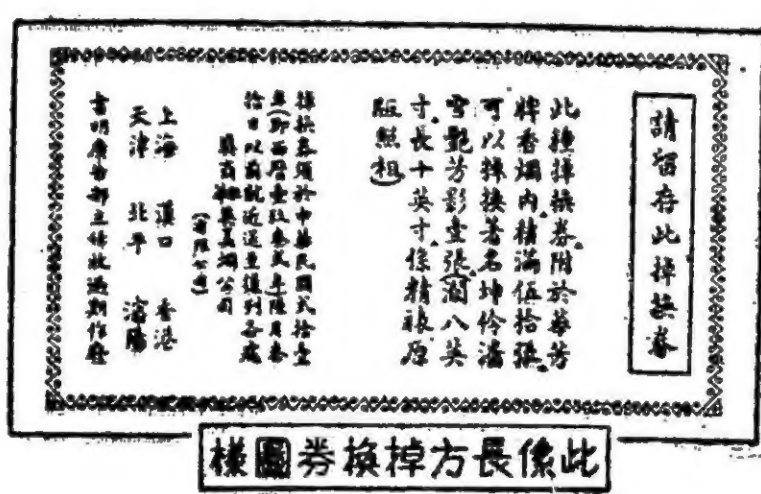 請留存此掉換券
此種掉換券附於芳
牌香烟内積滿伍拾張
可以掉換著名坤伶潘
雪艷芳影壹張(闊八英
寸長十英寸係精裱原
版照相)
掉換券須於中華民國式拾壹
年(即西曆壹玖叁式年陸月叁
拾日以前就近送至後列各處
英商駐華英美烟公司
(有限公司)
上海 漢口 香港
天津 北平 瀋陽
書明廣告部收過期作廢
此像長方掉換券圖樣